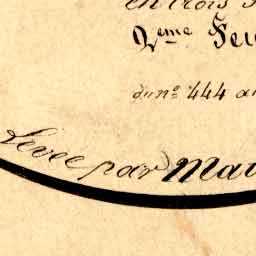 en trois
2eme Feu
du no 444 au
Levée par Mai